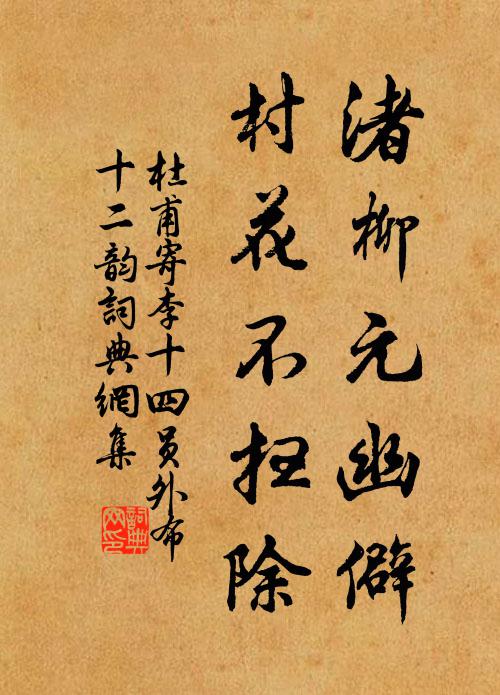 渚柳元幽僻
村花不扫除
杜甫寄李十四员外布
十二韵詞典網集